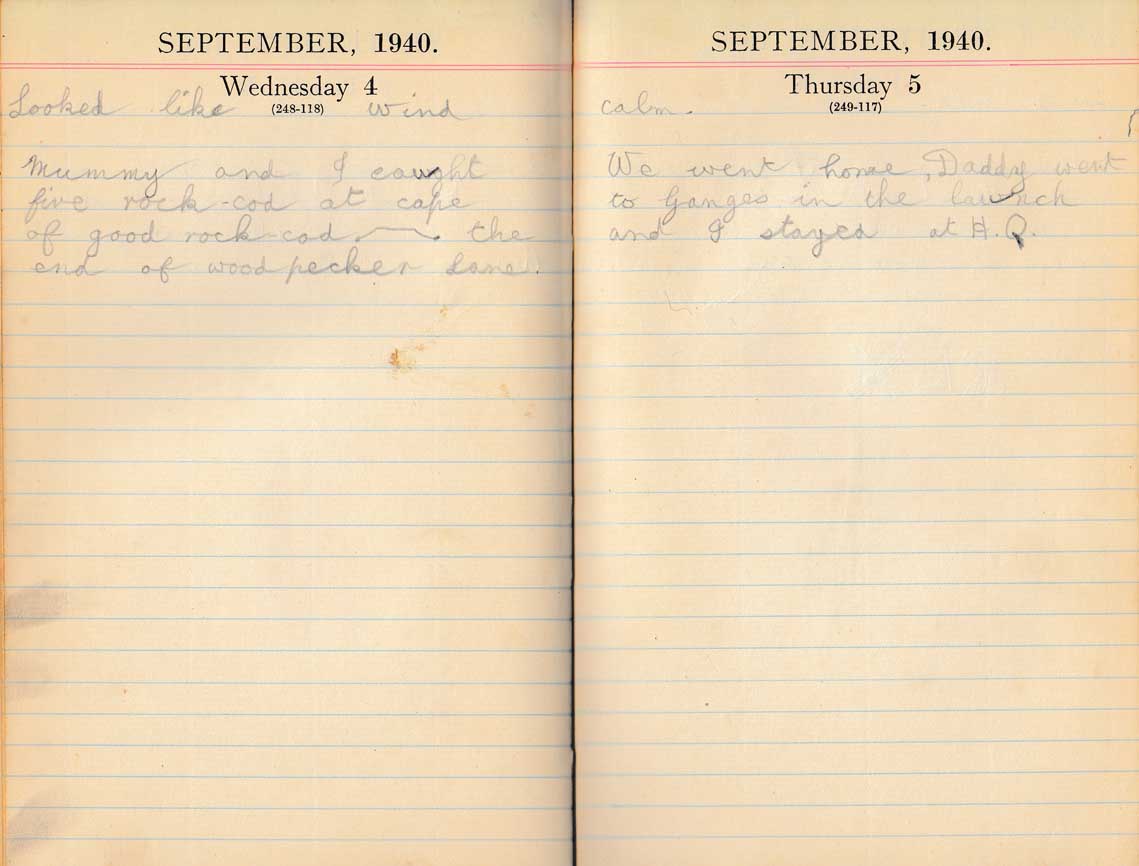 SEPTEMBER, 1940.
Wednesday 4
(248-118)
Looked like wind
Mummy and I caught
five rock-cod at cape
of good rock-cod — the
end of woodpecker lane.
SEPTEMBER, 1940.
Thursday 5
(249-117)
calm.
We went home, Daddy went
to Ganges in the launch
and I stayed at H.Q.